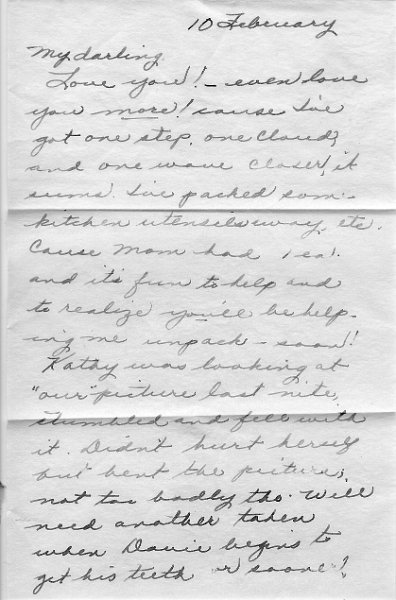 10 February
My darling,
Love you! - even love
you more! cause I've
got one step, one cloud,
and one wave closer, it
seems. I've packed some
kitchen utensils away, etc.
Cause Mom had
and it's fun to help and
to realize you'll be help-
ing me unpack - soon!
Kathy was looking at
"our" picture last nite,
stumbled and fell with
it. Didn't hurt herself
but bent the picture;
not too badly tho. Will
need another taken
when Davie begins to
get his teeth or sooner!